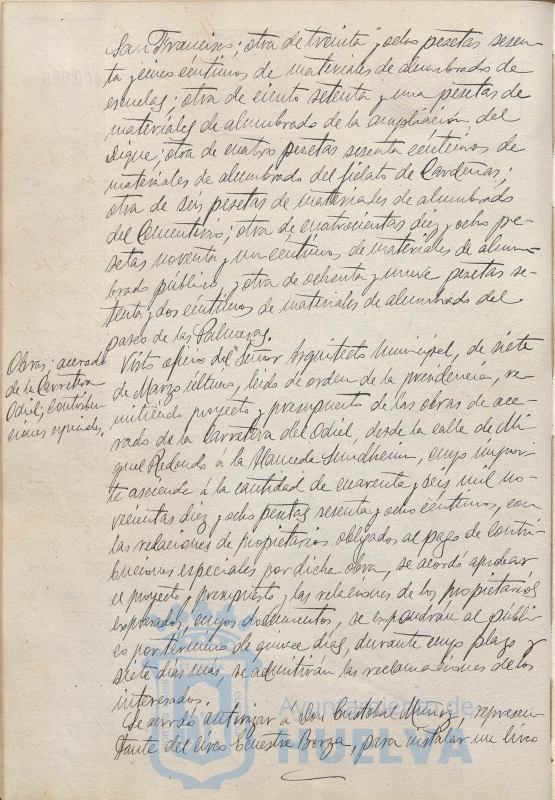 San Francisco; otra de treinta y ocho pesetas sesen-
ta y cinco céntimos de materiales de alumbrado de
escuelas; otra de ciento setenta y una pesetas de
materiales de alumbrado de la ampliación del
Dique; otra de cuatro pesetas sesenta céntimos de
materiales de alumbrado del fielato de Cardeñas;
otra de seis pesetas de materiales de alumbrado
del Cementerio; otra de cuatrocientas diez y ocho pe-
setas noventa y un céntimos de materiales de alum-
brado público, y otra de ochenta y nueve pesetas se-
tenta y dos céntimos de materiales de alumbrado del
paseo de las Palmeras.
Obras; acerado
de la Carretera
Odiel; contribu-
ciones especiales.
Visto oficio del Señor Arquitecto Municipal, de siete
de Marzo último, leido de orden de la presidencia, re-
mitiendo proyecto y presupuesto de las obras de ace-
rado de la Carretera del Odiel, desde la calle de Mi-
guel Redondo á la Alameda Sundheim, cuyo impor-
te asciende á la cantidad de cuarenta y seis mil no-
vecientas diez y ocho pesetas sesenta y ocho céntimos, con
las relaciones de propietarios obligados al pago de contri-
buciones especiales por dicha obra, se acordó aprobar
el proyecto y presupuesto y las relaciones de los propietarios
expresados, cuyos documentos, se expondrán al públi-
co por término de quince días, durante cuyo plazo y
siete días mas, se admitirán las reclamaciones de los
interesados.
Se acordó autorizar a Don Cristobal Muñoz, represen-
tante del circo Ecuestre Borza, para instalar un circo
Ayuntamiento de
HUELVA